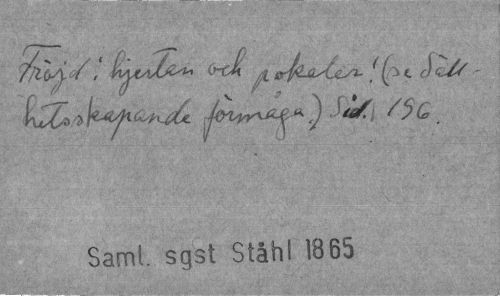 Fröjd i hjertan och pokaler! (se Säll-
hetsskapande förmåga.) Sid. 196.
Saml. sgst Ståhl 1865